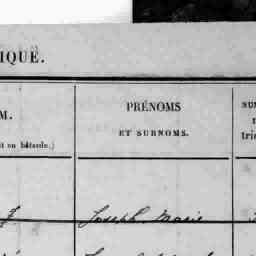 IQUE.
M.
it ou bâtarde.)
PRÉNOMS
ET SURNOMS.
SUR
Joseph Marie